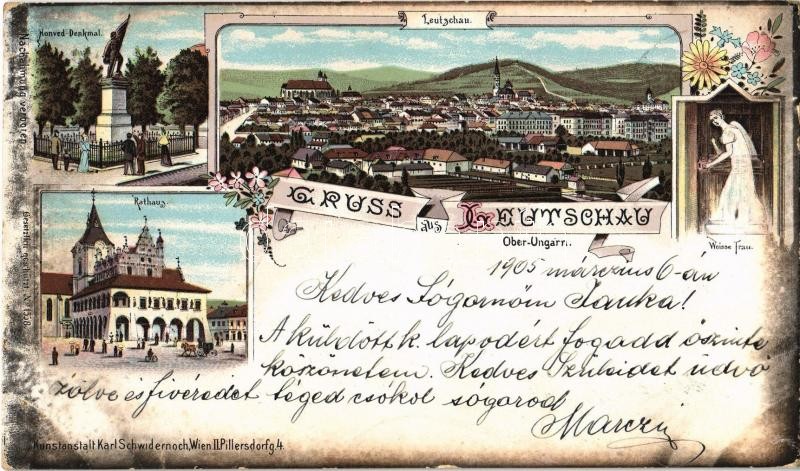 Honvéd-Denkmal.
Leutschau.
Nachahmung verboten
Rathaus.
GRUSS aus LEUTSCHAU
Ober-Ungarn.
Weisse Frau.
1905 márczius 6-án
Kedves Sógornöm Janka!
A küldött k. lapodért fogadd öszinte
köszönetem. Kedves Szüleidet üdvö
zölve és fivéredet téged csókol sógorod
Marczi
Kunstanstalt Karl Schwidernoch, Wien II. Pillersdorfg. 4.